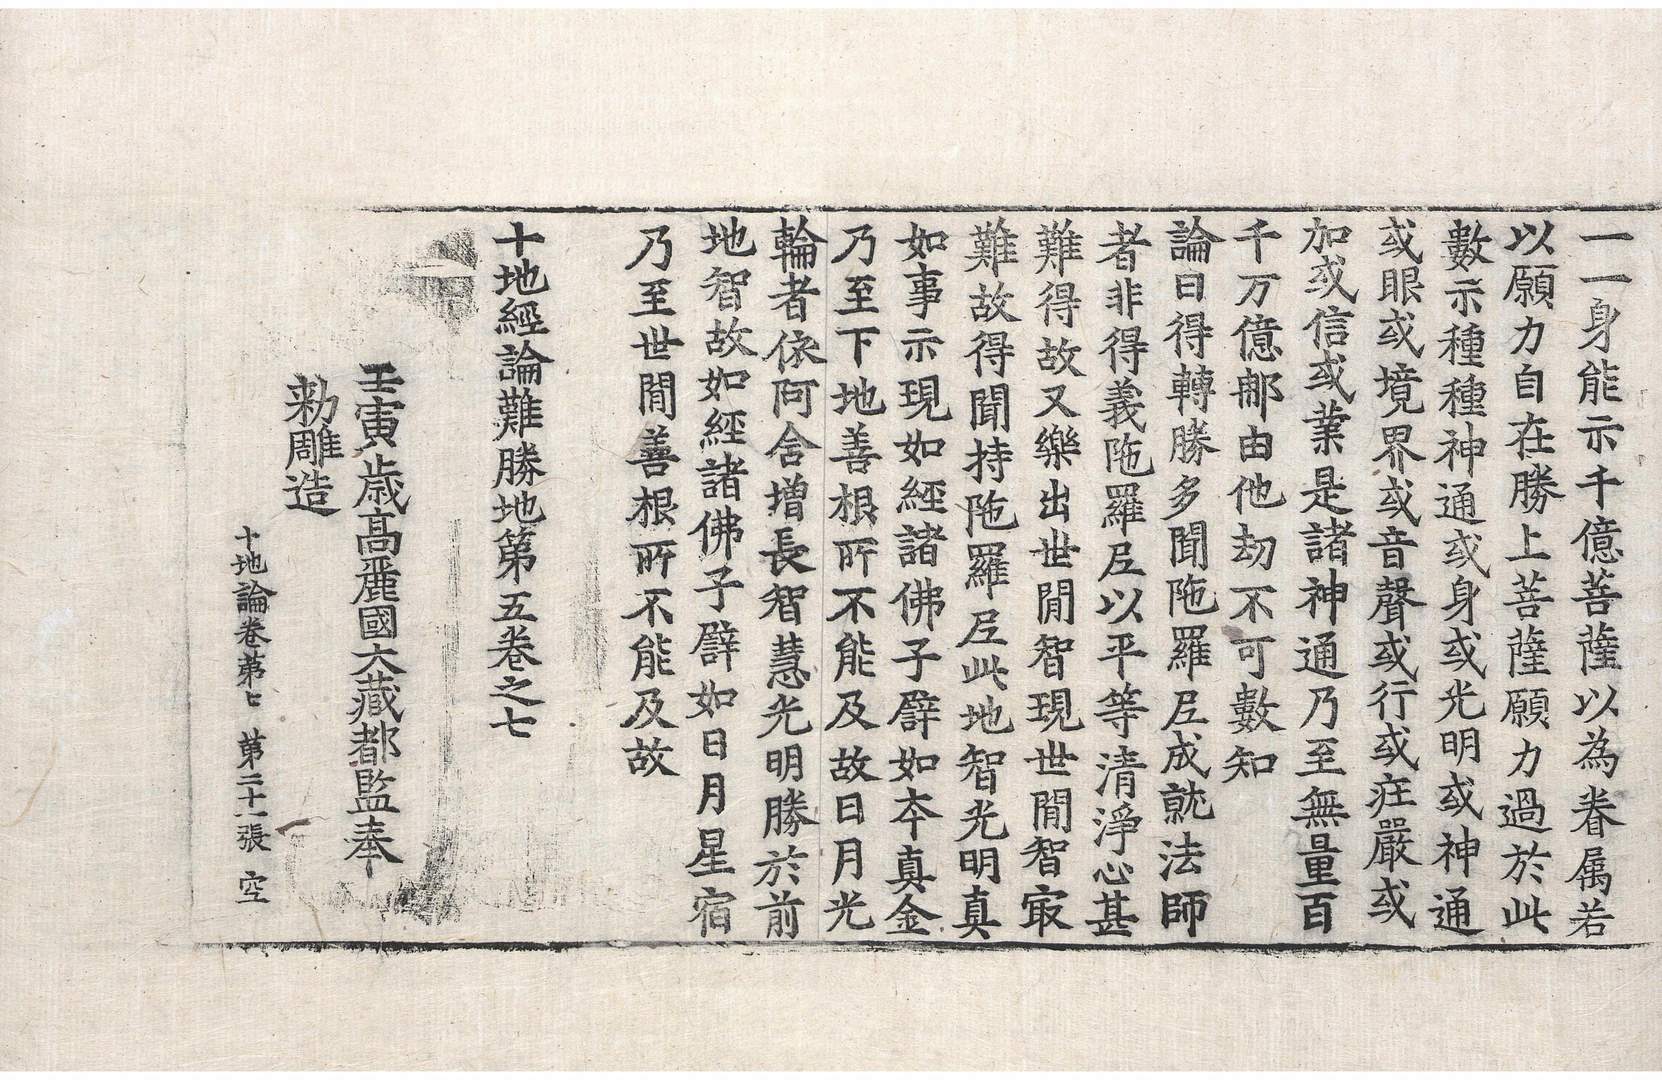 一一身能示千億菩薩以為眷属若
以願力自在勝上菩薩願力過於此
數示種種神通或身或光明或神通
或眼或境界或音聲或行或莊嚴或
加或信或業是諸神通乃至無量百
千万億那由他劫不可數知
論曰得轉勝多聞陁羅尼成就法師
者非得義陁羅尼以平等清淨心甚
難得故又樂出世閒智現世閒智㝡
難故得聞持陁羅尼此地智光明真
如事示現如經諸佛子譬如本真金
乃至下地善根所不能及故日月光
輪者依阿含增長智慧光明勝於前
地智故如經諸佛子譬如日月星宿
乃至世閒善根所不能及故
十地經論難勝地第五卷之七
壬寅歲高麗國大藏都監奉
勑雕造
十地論卷第七 第二十一張 空